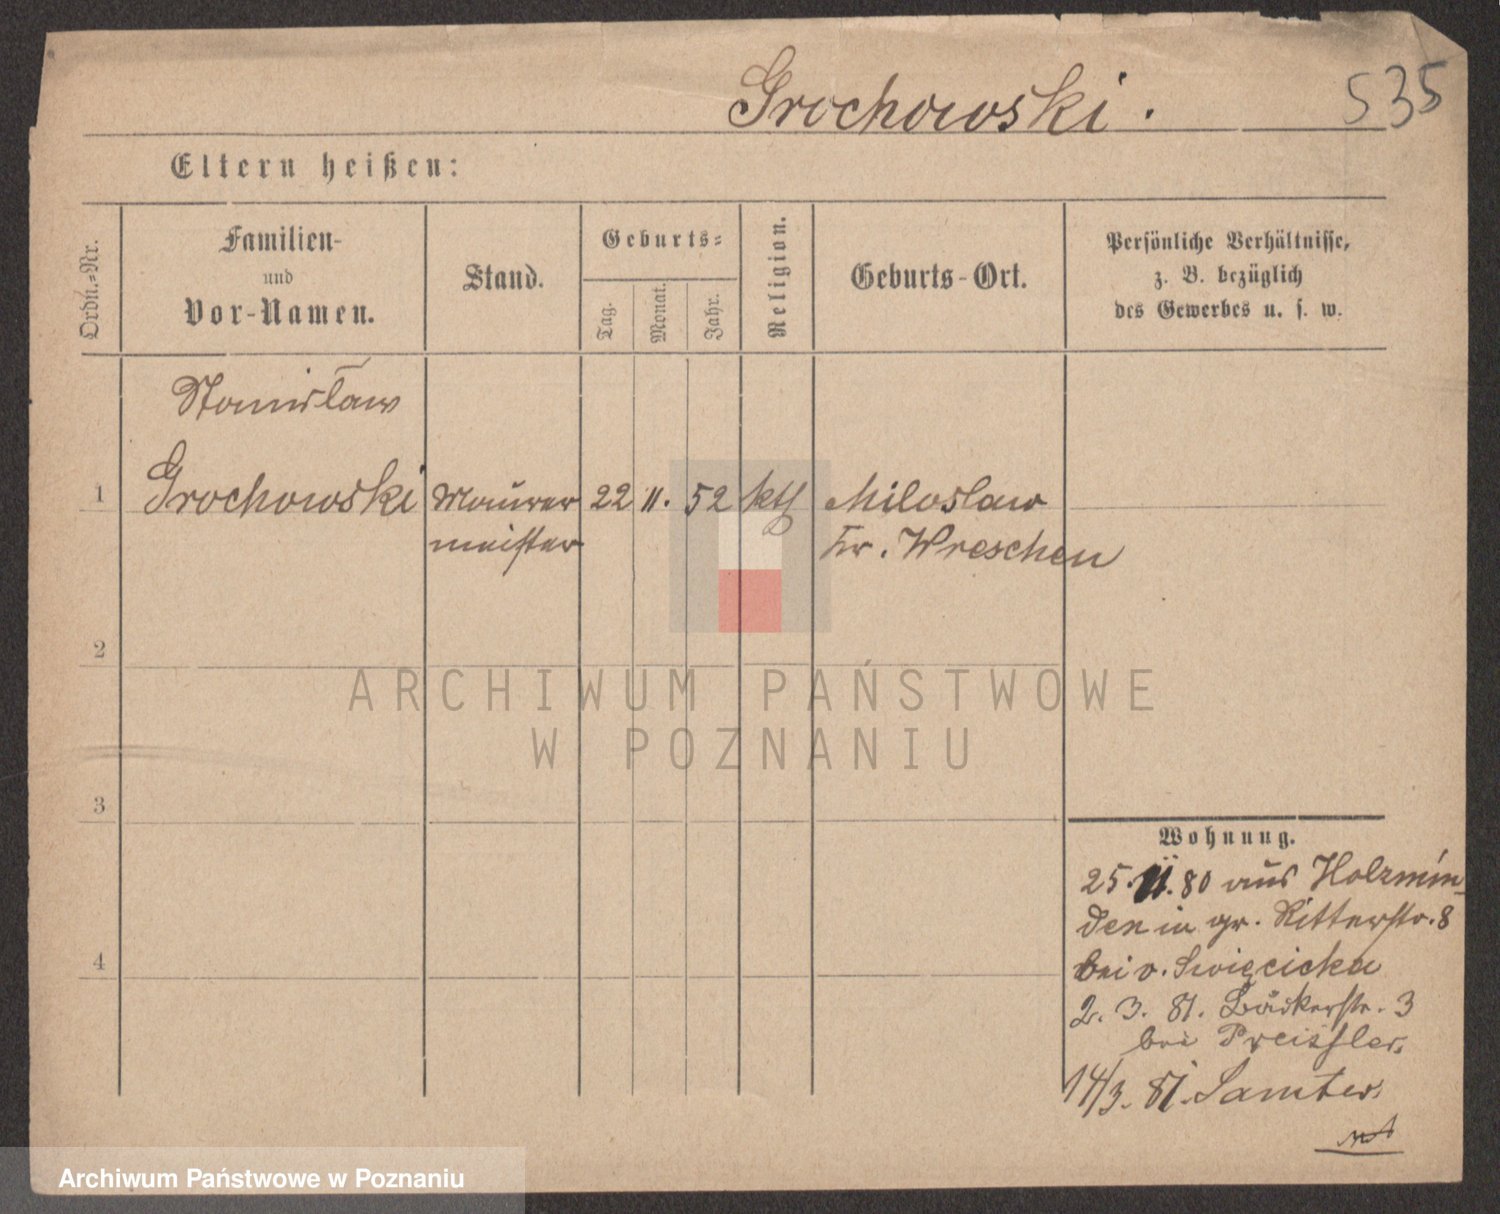 Grochowski.
535
Eltern heißen:
Ordn.-Nr.
Familien-
und
Vor-Namen.
Stand.
Geburts-
Tag.
Monat.
Jahr.
Religion.
Geburts-Ort.
Persönliche Verhältnisse,
z. B. bezüglich
des Gewerbes u. s. w.
Stanislaw
1 Grochowski Maurer 22 11. 52 kth Miloslaw
meister Kr. Wreschen
2
3
4
Wohnung.
25. 11. 80 aus Holzmin-
den in gr. Ritterstr. 8
bei v. Swięcicka
2. 3. 81. Bäckerstr. 3
bei Preissler
14/3. 81. Samter
ARCHIWUM PAŃSTWOWE
W POZNANIU
Archiwum Państwowe w Poznaniu